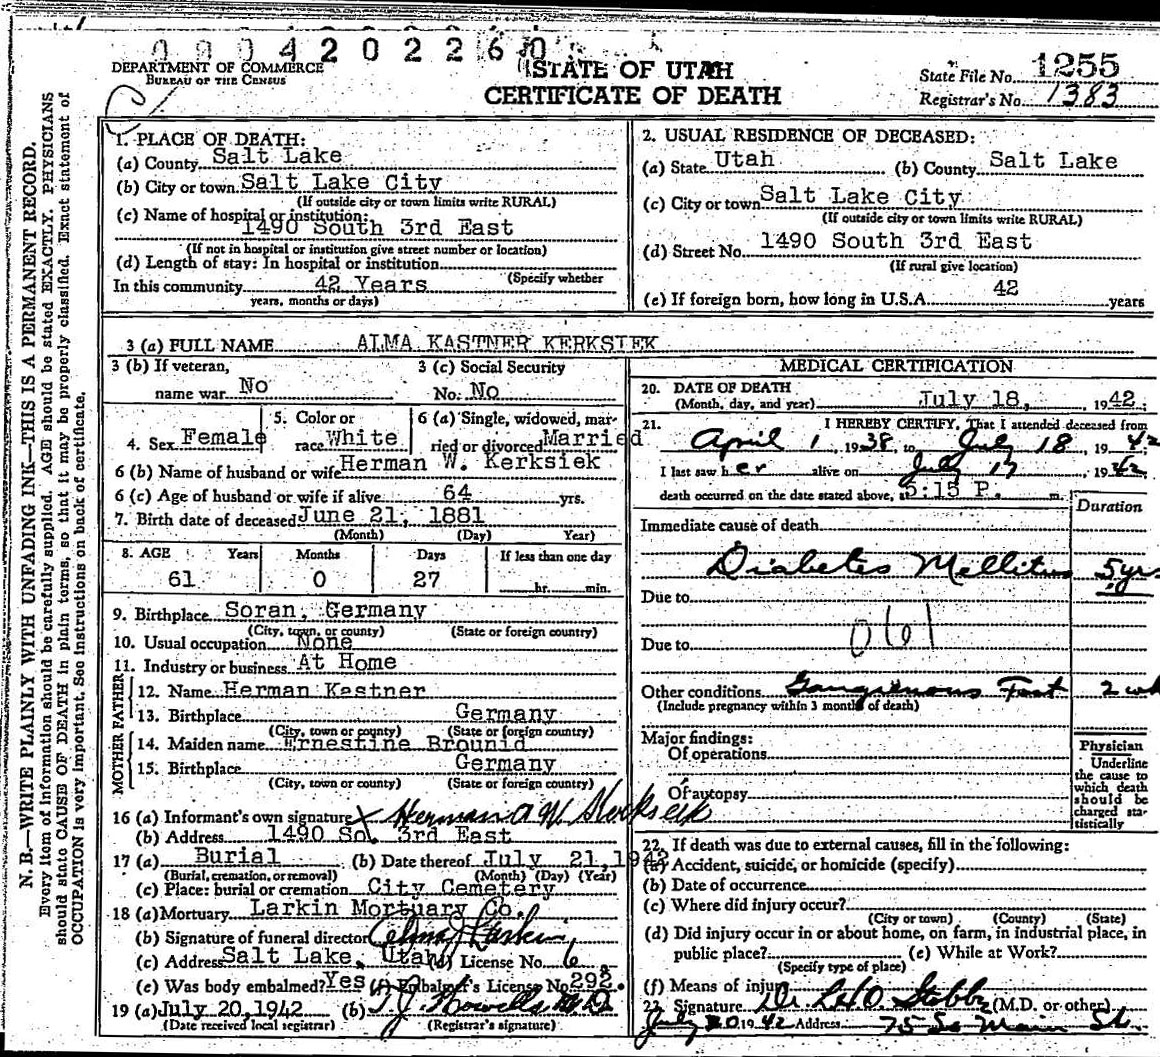 0904202260
DEPARTMENT OF COMMERCE
BUREAU OF THE CENSUS
STATE OF UTAH
CERTIFICATE OF DEATH
State File No. 1255
Registrar's No. 1383
N. B.—WRITE PLAINLY WITH UNFADING INK—THIS IS A PERMANENT RECORD.
Every item of information should be carefully supplied. AGE should be stated EXACTLY. PHYSICIANS
should state CAUSE OF DEATH in plain terms, so that it may be properly classified. Exact statement of
OCCUPATION is very important. See instructions on back of certificate.
1. PLACE OF DEATH:
(a) County Salt Lake
(b) City or town Salt Lake City
(If outside city or town limits write RURAL)
(c) Name of hospital or institution:
1490 South 3rd East
(If not in hospital or institution give street number or location)
(d) Length of stay: In hospital or institution
(Specify whether
In this community 42 Years
years, months or days)
2. USUAL RESIDENCE OF DECEASED:
(a) State Utah (b) County Salt Lake
(c) City or town Salt Lake City
(If outside city or town limits write RURAL)
(d) Street No. 1490 South 3rd East
(If rural give location)
(e) If foreign born, how long in U.S.A. 42 years
3 (a) FULL NAME ALMA KASTNER KERKSIEK
3 (b) If veteran,
name war No
3 (c) Social Security
No. No
4. Sex Female
5. Color or
race White
6 (a) Single, widowed, mar-
ried or divorced Married
6 (b) Name of husband or wife Herman W. Kerksiek
6 (c) Age of husband or wife if alive 64 yrs.
7. Birth date of deceased June 21, 1881
(Month) (Day) Year)
8. AGE Years Months Days If less than one day
61 0 27 hr. min.
9. Birthplace Soran, Germany
(City, town, or county) (State or foreign country)
10. Usual occupation None
11. Industry or business At Home
FATHER
12. Name Herman Kastner
13. Birthplace Germany
(City, town or county) (State or foreign country)
MOTHER
14. Maiden name Ernestine Brounid
15. Birthplace Germany
(City, town or county) (State or foreign country)
16 (a) Informant's own signature x Herman A W Kerksiek
(b) Address 1490 So. 3rd East
17 (a) Burial (b) Date thereof July 21, 1942
(Burial, cremation, or removal) (Month) (Day) (Year)
(c) Place: burial or cremation City Cemetery
18 (a) Mortuary Larkin Mortuary Co.
(b) Signature of funeral director Alma J Larkin
(c) Address Salt Lake, Utah (d) License No. 6
(e) Was body embalmed? Yes (f) Embalmer's License No. 292.
19 (a) July 20, 1942 (b) T. J. Howells M.D.
(Date received local registrar) (Registrar's signature)
MEDICAL CERTIFICATION
20. DATE OF DEATH
(Month, day, and year) July 18, 1942.
21. I HEREBY CERTIFY, That I attended deceased from
April 1, 1938, to July 18, 1942
I last saw her alive on July 17, 1942
death occurred on the date stated above, at 5:15 P. m.
Duration
Immediate cause of death
Diabetes Mellitus 5 yrs
Due to
061
Due to
Other conditions Gangrenous Foot 2 wk
(Include pregnancy within 3 months of death)
Major findings:
Of operations
Of autopsy
Physician
Underline
the cause to
which death
should be
charged sta-
tistically
22. If death was due to external causes, fill in the following:
(a) Accident, suicide, or homicide (specify)
(b) Date of occurrence
(c) Where did injury occur?
(City or town) (County) (State)
(d) Did injury occur in or about home, on farm, in industrial place, in
public place? (e) While at Work?
(Specify type of place)
(f) Means of injury
23. Signature Dr. L.H.O. Stobbe (M.D. or other)
July 20 1942 Address 75 So Main St.